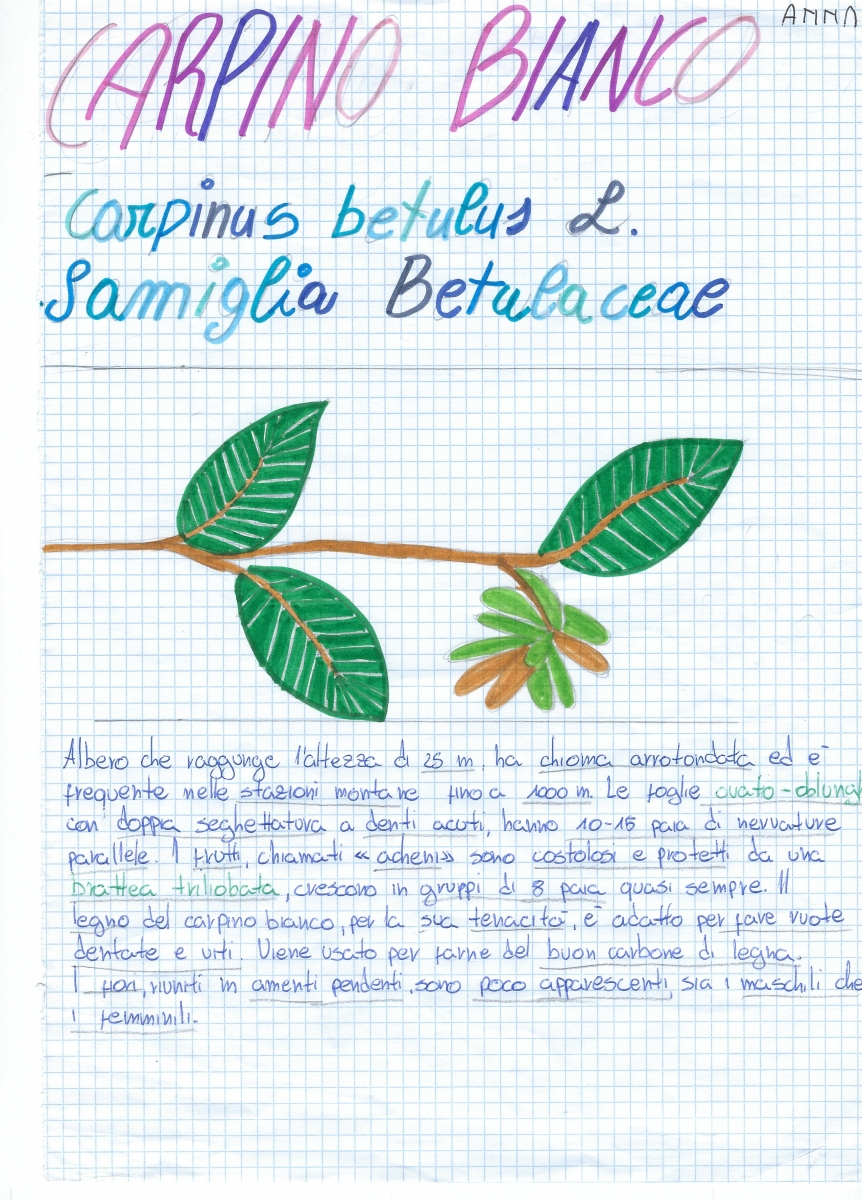 ANNA
CARPINO BIANCO
Carpinus betulus L.
Famiglia Betulaceae
Albero che raggunge l'altezza di 25 m, ha chioma arrotondata ed è
frequente nelle stazioni montane fino a 1000 m. Le foglie ovato-oblungh
con doppia seghettatura a denti acuti, hanno 10-15 paia di nervature
parallele. I frutti, chiamati «acheni» sono costolosi e protetti da una
brattea triliobata, crescono in gruppi di 8 paia quasi sempre. Il
legno del carpino bianco, per la sua tenacità, è adatto per fare ruote
dentate e viti. Viene usato per farne del buon carbone di legna.
I fiori, riuniti in amenti pendenti, sono poco appariscenti, sia i maschili che
i femminili.